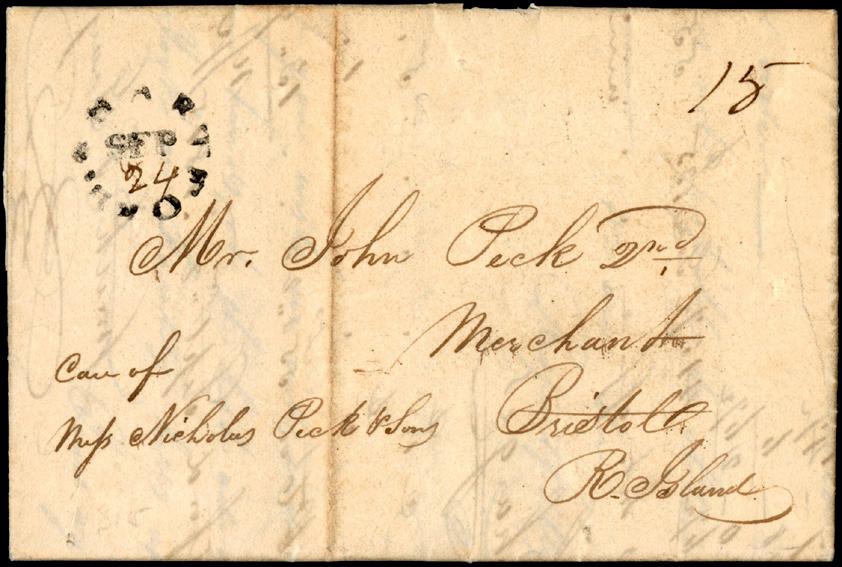 15
SEP
24
Mr. John Peck 2nd
Merchant
Care of
Mess Nicholas Peck & Sons
Bristoll
R. Island